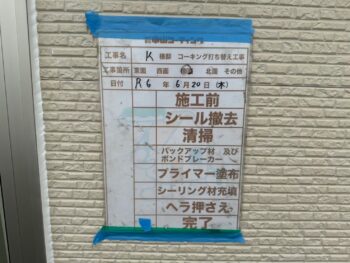 工事名 K 様邸 コーキング打ち替え工事
工事箇所 東面 西面 南面 北面 その他
日付 R6 年 6月 20日 (木)
施工前
シール撤去
清掃
バックアップ材 及び
ボンドブレーカー
プライマー塗布
シーリング材充填
ヘラ押さえ
完了